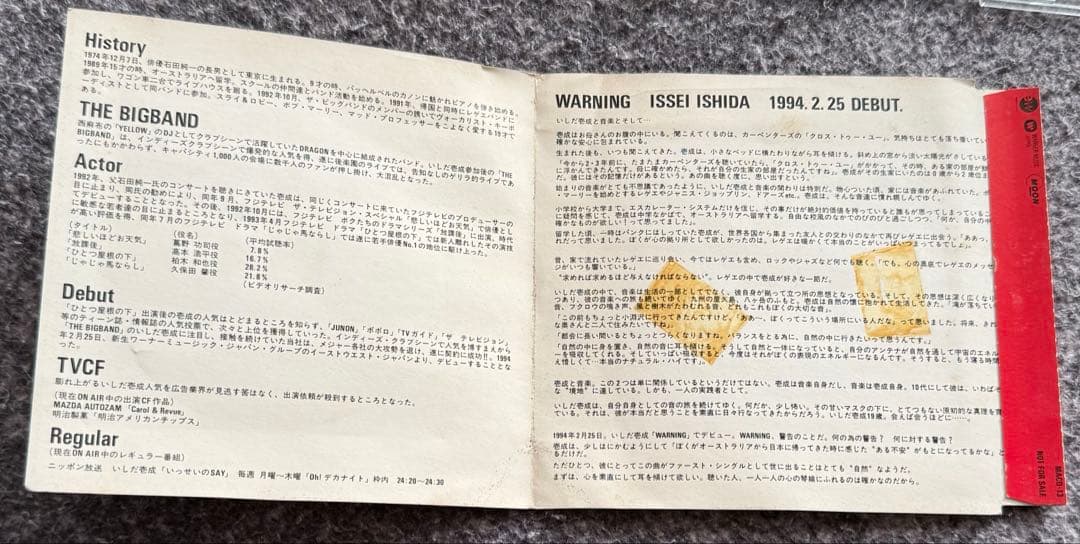 History
1974年12月7日、俳優石田純一の長男として東京に生まれる。9才の時、パッヘルベルのカノンに魅かれピアノを弾き始める。
1989年15才の時、オーストラリアへ留学。スクールの仲間達とバンド活動を始める。1991年、帰国と同時にレゲエバンドに
参加し、ワゴン車二台でライブハウスを廻る。1992年10月、ザ・ビッグバンドのメンバーの誘いでヴォーカリスト・キーボ
ーディストとして同バンドに参加。スライ&ロビー、ボブ・マーリー、マッド・プロフェッサーをこよなく愛する19才で
ある。
THE BIGBAND
西麻布の「YELLOW」のDJとしてクラブシーンで活躍していたDRAGONを中心に結成されたバンド。いしだ壱成参加後の「THE
BIGBAND」は、インディーズクラブシーンで爆発的な人気を得、遂に後楽園のライブでは、告知なしのゲリラ的ライブであ
ったにもかかわらず、キャパシティ1,000人の会場に数千人のファンが押し掛け、大混乱となった。
Actor
1992年、父石田純一氏のコンサートを聴きにきていた壱成は、同じくコンサートに来ていたフジテレビのプロデューサーの
目に止まり、同氏の勧めにより、同年9月、フジテレビ ザ・テレビジョン・スペシャル「悲しいほどお天気」で俳優とし
てデビューすることとなった。その後、1992年10月には、フジテレビ ボクたちのドラマシリーズ「放課後」に出演、時代
に敏感な若者達の目に止まるところとなり、1993年4月フジテレビ ドラマ「ひとつ屋根の下」では新人離れしたその演技
が高い評価を得、同年7月のフジテレビ ドラマ「じゃじゃ馬ならし」では遂に若手俳優No.1の地位に駆け上った。
(タイトル) (役名) (平均試聴率)
「悲しいほどお天気」 功司役 7.8%
「放課後」 高本 浩平役 16.7%
「ひとつ屋根の下」 柏木 和也役 28.2%
「じゃじゃ馬ならし」 久保田 馨役 21.6%
(ビデオリサーチ調査)
Debut
「ひとつ屋根の下」出演後の壱成の人気はとどまるところを知らず、「JUNON」「ポポロ」「TVガイド」「ザ テレビジョン」
等のティーン誌・情報誌の人気投票で、次々と上位を獲得していった。インディーズ・クラブシーンで人気を博すまえから
「THE BIGBAND」のいしだ壱成に注目し、接触を続けていた当社は、メジャー各社の大攻勢を退け、遂に契約に成功!!。1994
年2月25日、新生ワーナーミュージック・ジャパン・グループのイーストウエスト・ジャパンより、デビューすることとな
った。
TVCF
膨れ上がるいしだ壱成人気を広告業界が見逃す筈はなく、出演依頼が殺到するところとなった。
(現在ON AIR中の出演CF作品)
MAZDA AUTOZAM「Carol & Revue」
明治製菓「明治アメリカンチップス」
Regular
(現在ON AIR中のレギュラー番組)
ニッポン放送 いしだ壱成「いっせいのSAY」 毎週 月曜~木曜「Oh!デカナイト」枠内 24:20~24:30
WARNING ISSEI ISHIDA 1994.2.25 DEBUT.
いしだ壱成と音楽。そして…
壱成はお母さんのお腹の中にいる。聞こえてくるものは、カーペンターズの「クロス・トゥー・ユー」。気持ちはとても落ち着いてい
確かな安心に包まれている。
生まれた後も、いつも聞こえてきた。壱成は、小さなベッドに横たわりながら耳を傾ける。斜め上の窓から淡い太陽光がさしている
「今から2・3年前に、たまたまカーペンターズを聴いていたら、「クロス・トゥー・ユー」がかかって、その時、ある家の部屋が鮮
に浮かんできたんです。段に確かめたら、それが自分の生家の部屋だったんですね」。壱成がその生家にいたのは0歳から2歳位ま
だ。彼にはその記憶だけがあるという。あの曲を聴く度に、思い出すという。
始まりの音楽がとても不思議であったように、いしだ壱成と音楽の関わりは特別だ。物心ついた頃、家には音楽があふれていた。ボ
・マーリーを始めとするレゲエやジャニス・ジョップリン、ドアーズetc。壱成は、そんな音達に慣れ親しんでゆく。
小学校から大学まで、エスカレーター・システムだけを信じ、その事だけが絶対的価値を持っていると誰もが思ってしまっているこ
に疑問を感じて、壱成は中学なかばで、オーストラリアへ留学する。
留学した頃、一時はパンクにはしっていた壱成が、世界各国から集まった友人との交わりのなかで再びレゲエに出会う。
昔、家で流れていたレゲエに巡り会い、今ではレゲエも含め、ロックやジャズなど何でも聴く。「でも、心の奥底でレゲエのメッセ
ジがいつも響いている。」
“求めれば求めるほど与えなければならない”。レゲエの中で壱成が好きな一節だ。
いしだ壱成の中で、音楽は生活の一部としてでなく、彼自身が拠って立つ所の思想となっている。そして、その思想は深く広くなり
つあり、彼の音楽への旅も続いてゆく。九州の屋久島、八ヶ岳のふもと。壱成は自然の懐に抱かれて生活してきた。
「この前もちょっと小淵沢に行ってきたんですけど、
な奥さんと二人で住みたいですね」。
「都会に長い間いるとちょっとつらくなりますね。バランスをとる為に、自然の中に行きたいって思うんです」。
「自然の中に身を置き、自然の音に耳を傾ける。そうして自然と一体になっていると、自分のアンテナが自然を通して宇宙のエネル
ーを吸収してくれる。そしていっぱい吸収すると、今度はそれがぼくの表現のエネルギーになるんです。
壱成と音楽。この2つは単に関係しているというだけではない。壱成は音楽自身だし、音楽は壱成自身。10代にして彼は、いわばそ
な“境地”に達している。しかも、一人の実践者として。
いしだ壱成は、自分自身としての音の旅を続けてゆく。何だか、少し怖い。その甘いマスクの下に、とてつもない原初的な真理を寶
ている。それは、彼が本当だと思うことを素直に日々行なってきたからだろう。いしだ壱成19歳。会えば会うほどに……。
1994年2月25日。いしだ壱成「WARNING」でデビュー。WARNING、警告のことだ。何の為の警告? 何に対する警告?
壱成は、少しはにかむようにして「ぼくがオーストラリアから日本に帰ってきた時に感じた“ある不安”がもとになってるかな」と
だけだ。
ただひとつ、彼にとってこの曲がファースト・シングルとして世に出ることはとても“自然”なようだ。
まずは、心を素直にして耳を傾けて欲しい。聴いた人、一人一人の心の琴線にふれるのは確かなのだから。
WARNER MUSIC JAPAN
MOON
MACD-13
NOT FOR SALE